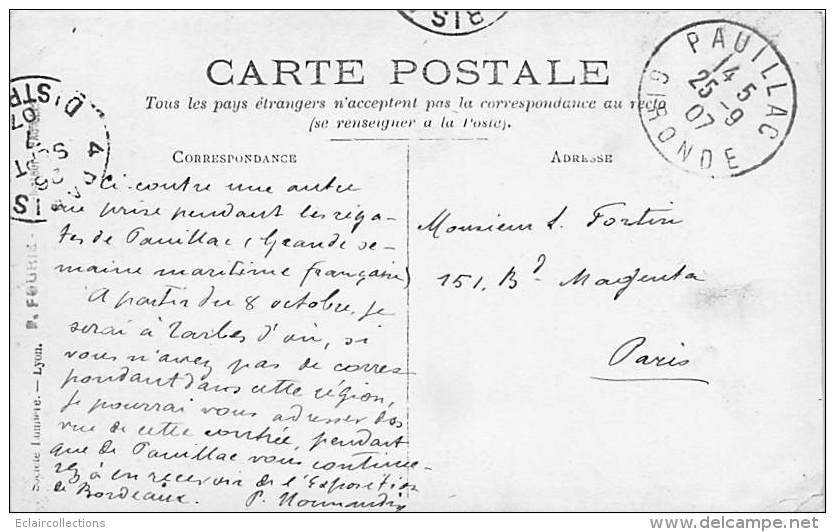 CARTE POSTALE
Tous les pays étrangers n'acceptent pas la correspondance au recto
(se renseigner a la Poste).
CORRESPONDANCE
Ci-contre une autre
vue prise pendant les réga-
tes de Pauillac (Grande se-
maine maritime française)
A partir du 8 octobre, je
serai à Tarbes d'où, si
vous n'avez pas de corres
pondant dans cette région,
je pourrai vous adresser des
vue de cette contrée, pendant
que de Pauillac vous continue-
rez à en recevoir de l'Exposition
de Bordeaux. P.
ADRESSE
Monsieur L. Fortin
151, Bd Magenta
Paris
PAUILLAC
14 5
25 -9
07
GIRONDE
RIS
DISTR
IS
P. FOURIE
Société Lumière. — Lyon.
Eclaircollections
delcampe.net